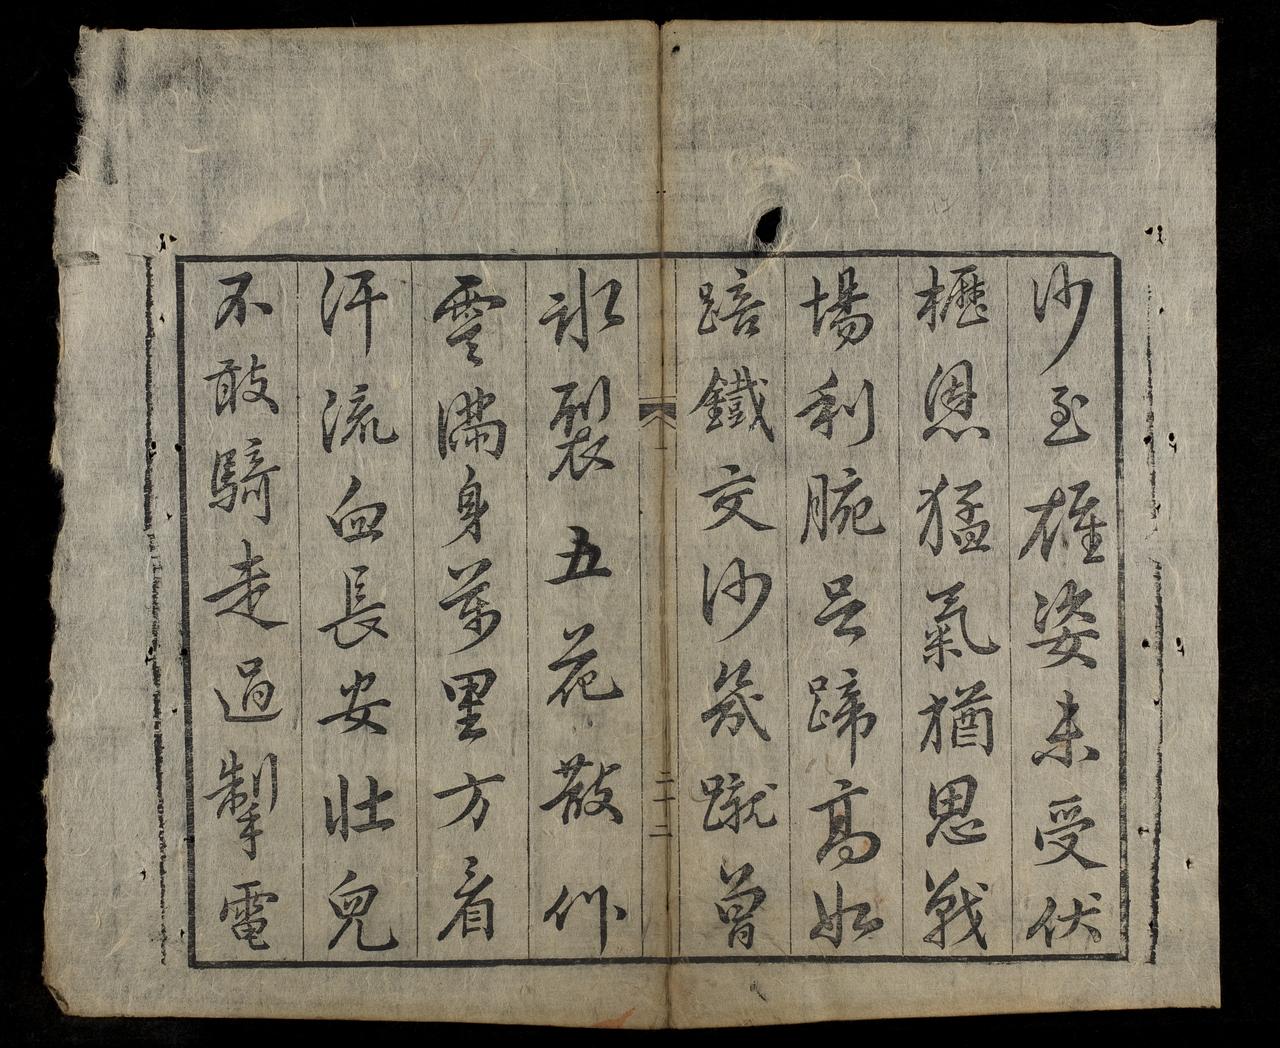 沙至雄姿未受伏
櫪恩猛氣猶思戰
場利腕足蹄高如
踣鐵交沙幾蹴曾
二十二
冰裂五花散作
雲滿身萬里方看
汗流血長安壯兒
不敢騎走過掣電